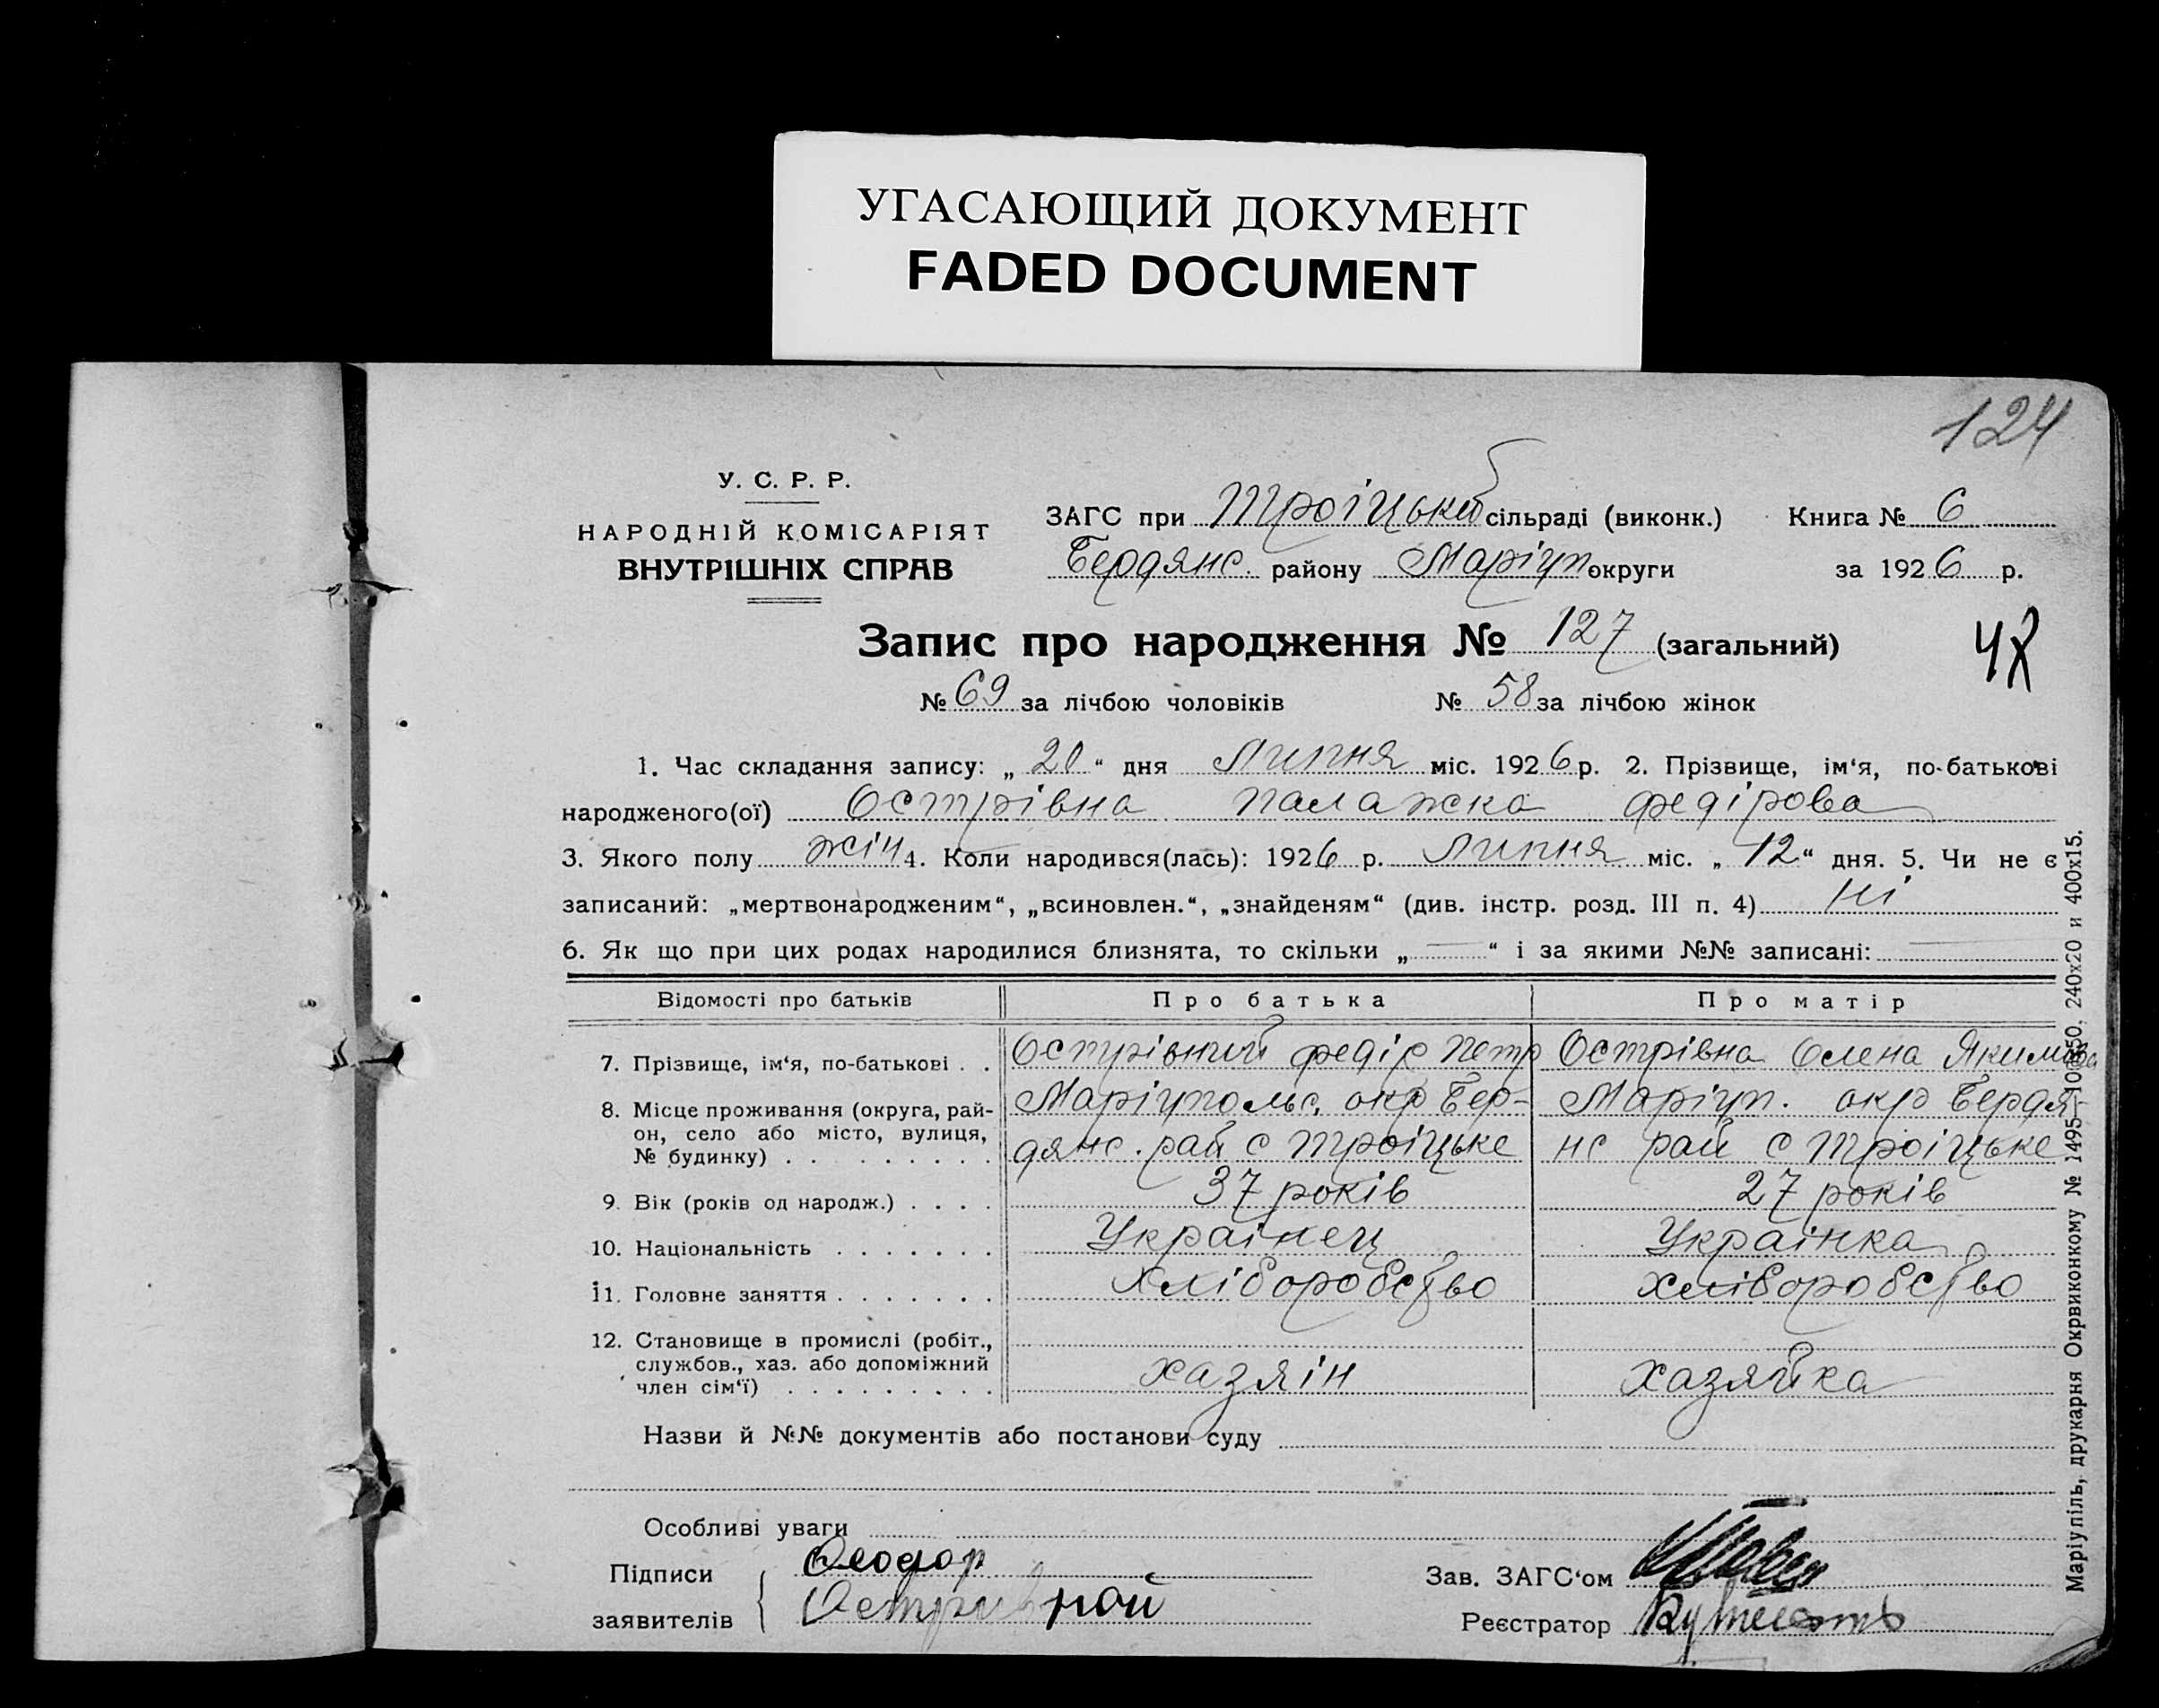 УГАСАЮЩИЙ ДОКУМЕНТ
FADED DOCUMENT
124
У. С. Р. Р.
НАРОДНІЙ КОМІСАРІЯТ
ВНУТРІШНІХ СПРАВ
ЗАГС при Троіцькій сільраді (виконк.) Книга № 6
Бердянс. району Маріуп округи за 1926 р.
Запис про народження № 127 (загальний)
№ 69 за лічбою чоловіків № 58 за лічбою жінок
1. Час складання запису: „20“ дня Липня міс. 1926 р. 2. Прізвище, ім‘я, по-батькові
народженого(ої) Острівна палажка федірова
3. Якого полу жін 4. Коли народився(лась): 1926 р. Липня міс. „12“ дня. 5. Чи не є
записаний: „мертвонародженим“, „всиновлен.“, „знайденям“ (див. інстр. розд. III п. 4) Ні
6. Як що при цих родах народилися близнята, то скільки „—“ і за якими №№ записані: —
Відомості про батьків Про батька Про матір
7. Прізвище, ім‘я, по-батькові . . Острівний федір Петр Острівна Олена Якимова
8. Місце проживання (округа, рай- Маріупольс. окр Бер- Маріуп. окр Бердя-
он, село або місто, вулиця, дянс. рай с Троіцьке нс рай с Троіцьке
№ будинку) . . . . . . . . .
9. Вік (років од народж.) . . . . 37 років 27 років
10. Національність . . . . . . . Украінец Украінка
11. Головне заняття . . . . . . . Хліборобство хліборобство
12. Становище в промислі (робіт.,
службов., хаз. або допоміжний хазяін хазяйка
член сім‘ї) . . . . . . . . .
Назви й №№ документів або постанови суду
Особливі уваги
Підписи Феодор
заявителів Островной
Зав. ЗАГС‘ом
Реєстратор
Маріупіль, друкарня Окрвиконкому № 1495-10850. 240х20 и 400х15.